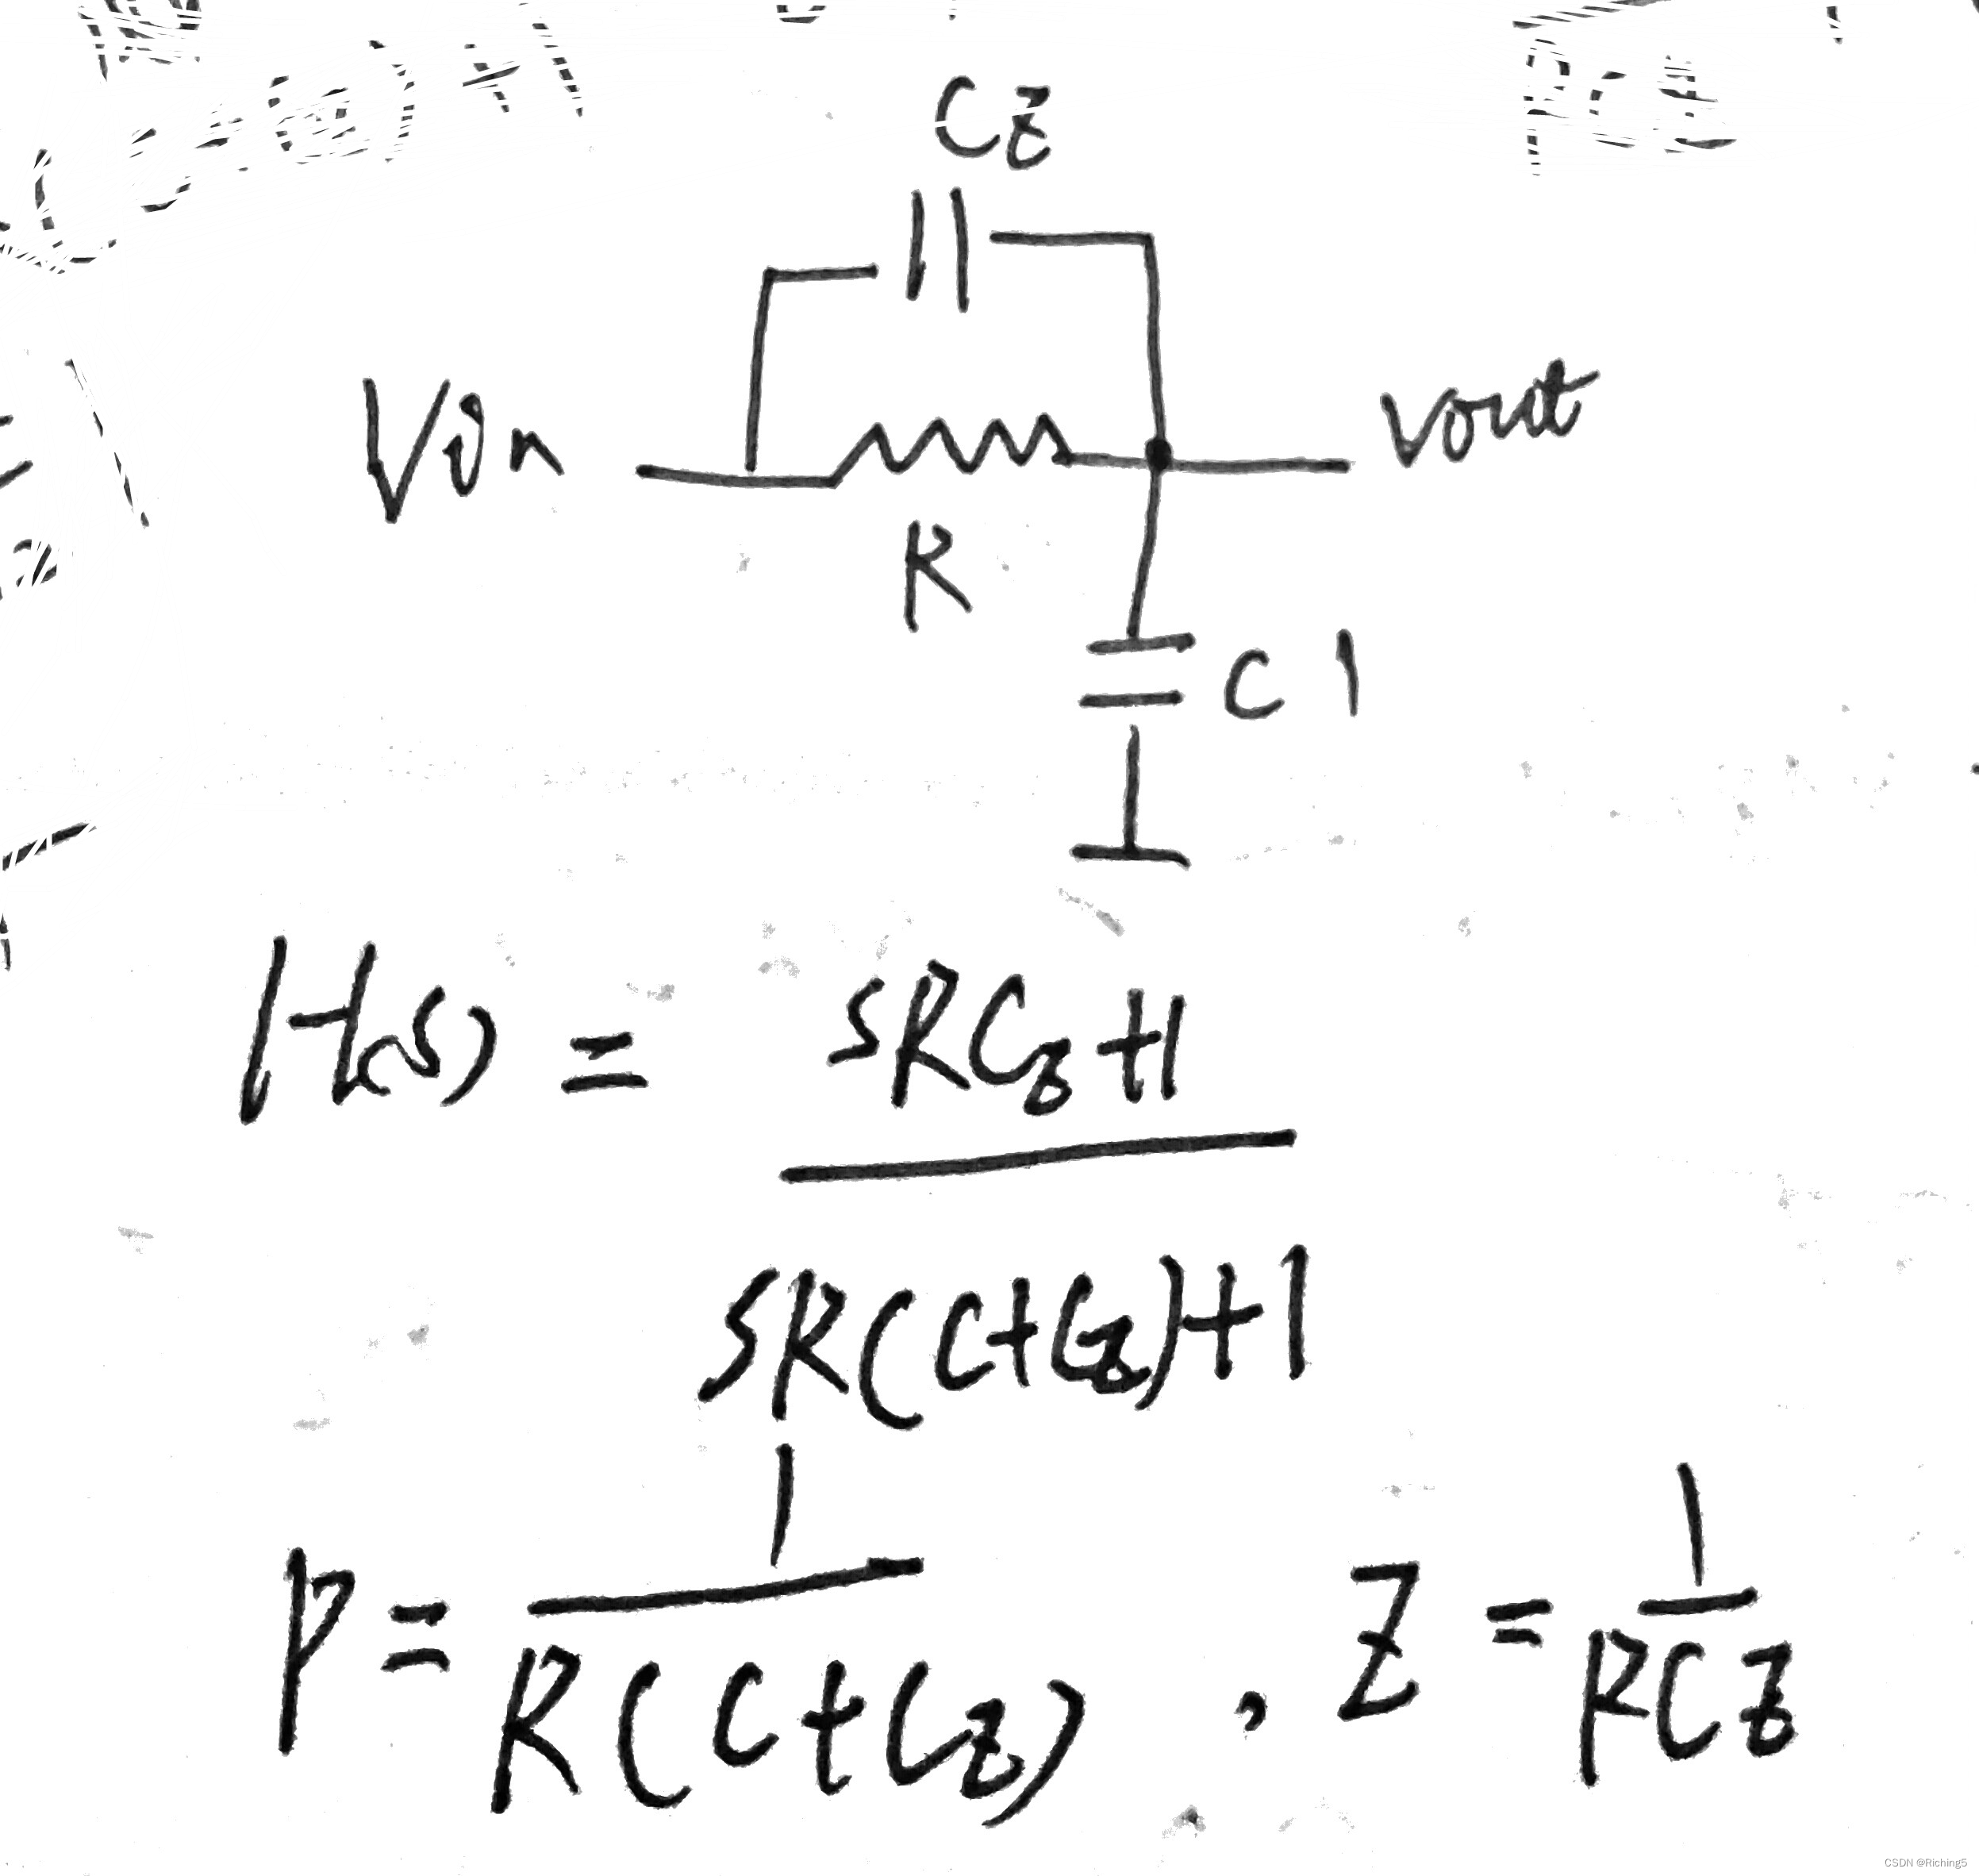 Cz
Vin
Vout
R
C1
H(s) = sRCz+1
sR(C+Cz)+1
P = 1 , Z = 1
R(C+Cz) RCz
CSDN @Riching5